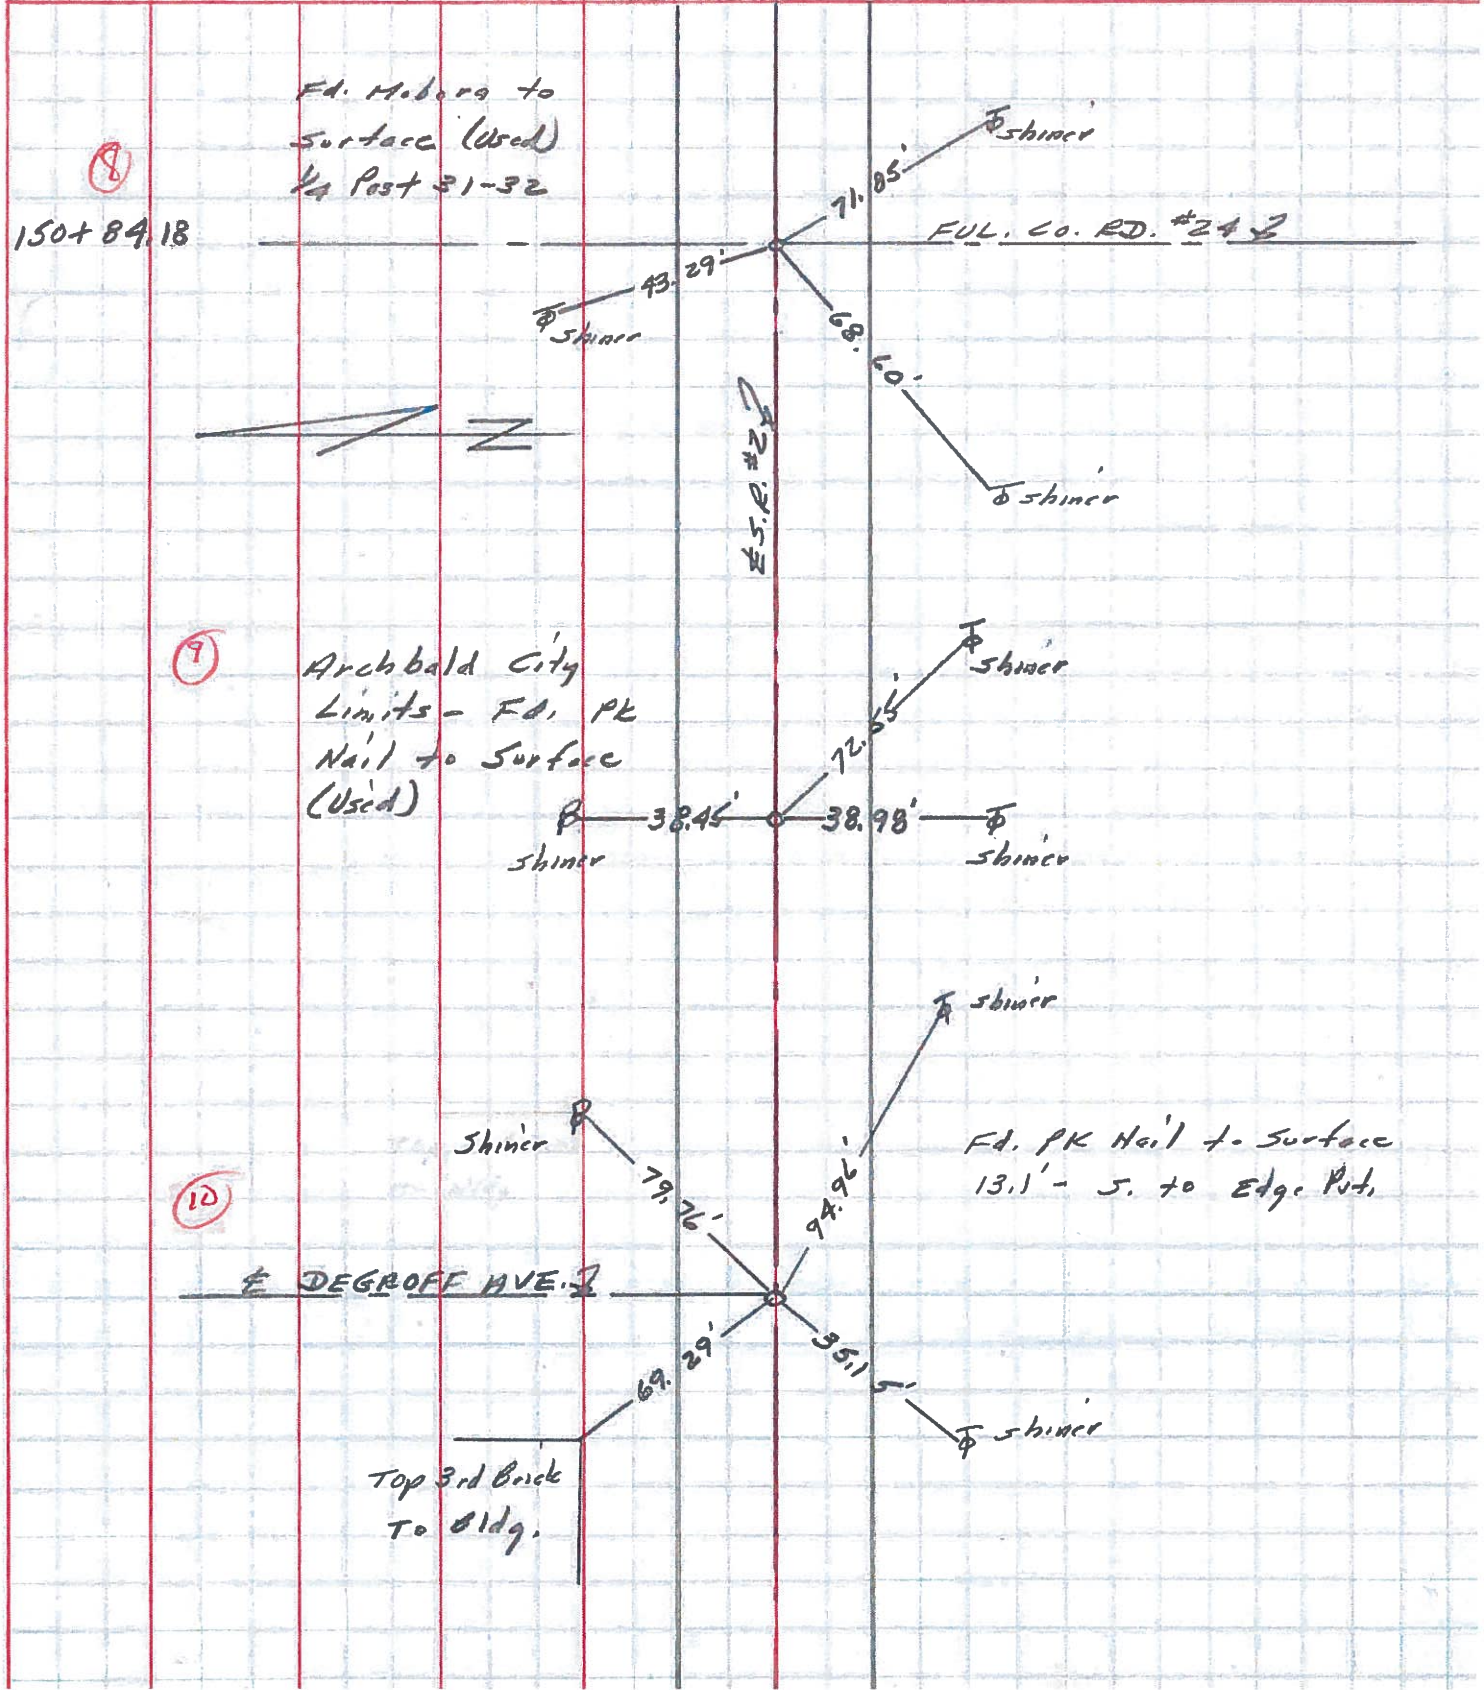 Fd. Mobora to
Surface (Used)
1/4 Post 31-32
8
150+84.18
shiner
71.85'
FUL. CO. RD. #24
43.29'
shiner
68.50'
shiner
N
℄ S.R. #2
9
Archbald City
Limits - Fd. PK
Nail to Surface
(Used)
shiner
72.55'
38.45'
38.98'
shiner
shiner
shiner
shiner
79.76'
94.96'
Fd. PK Nail to Surface
13.1' - S. to Edge Pvt.
10
℄ DEGROFF AVE.
69.29'
35.15'
shiner
Top 3rd Brick
To Bldg.